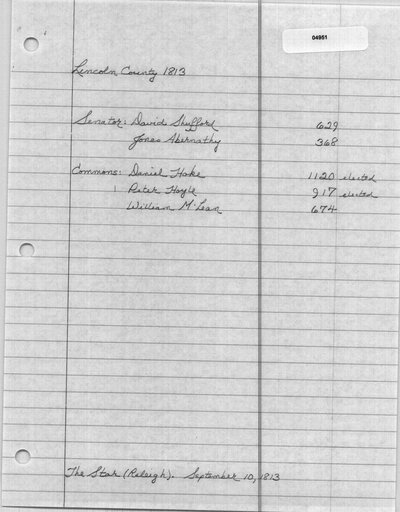 04951
Lincoln County 1813
Senator: David Shufford 629
Jonas Abernathy 368
Commons: Daniel Hoke 1120 elected
Peter Hoyle 917 elected
William McLean 674
The Star (Raleigh). September 10, 1813